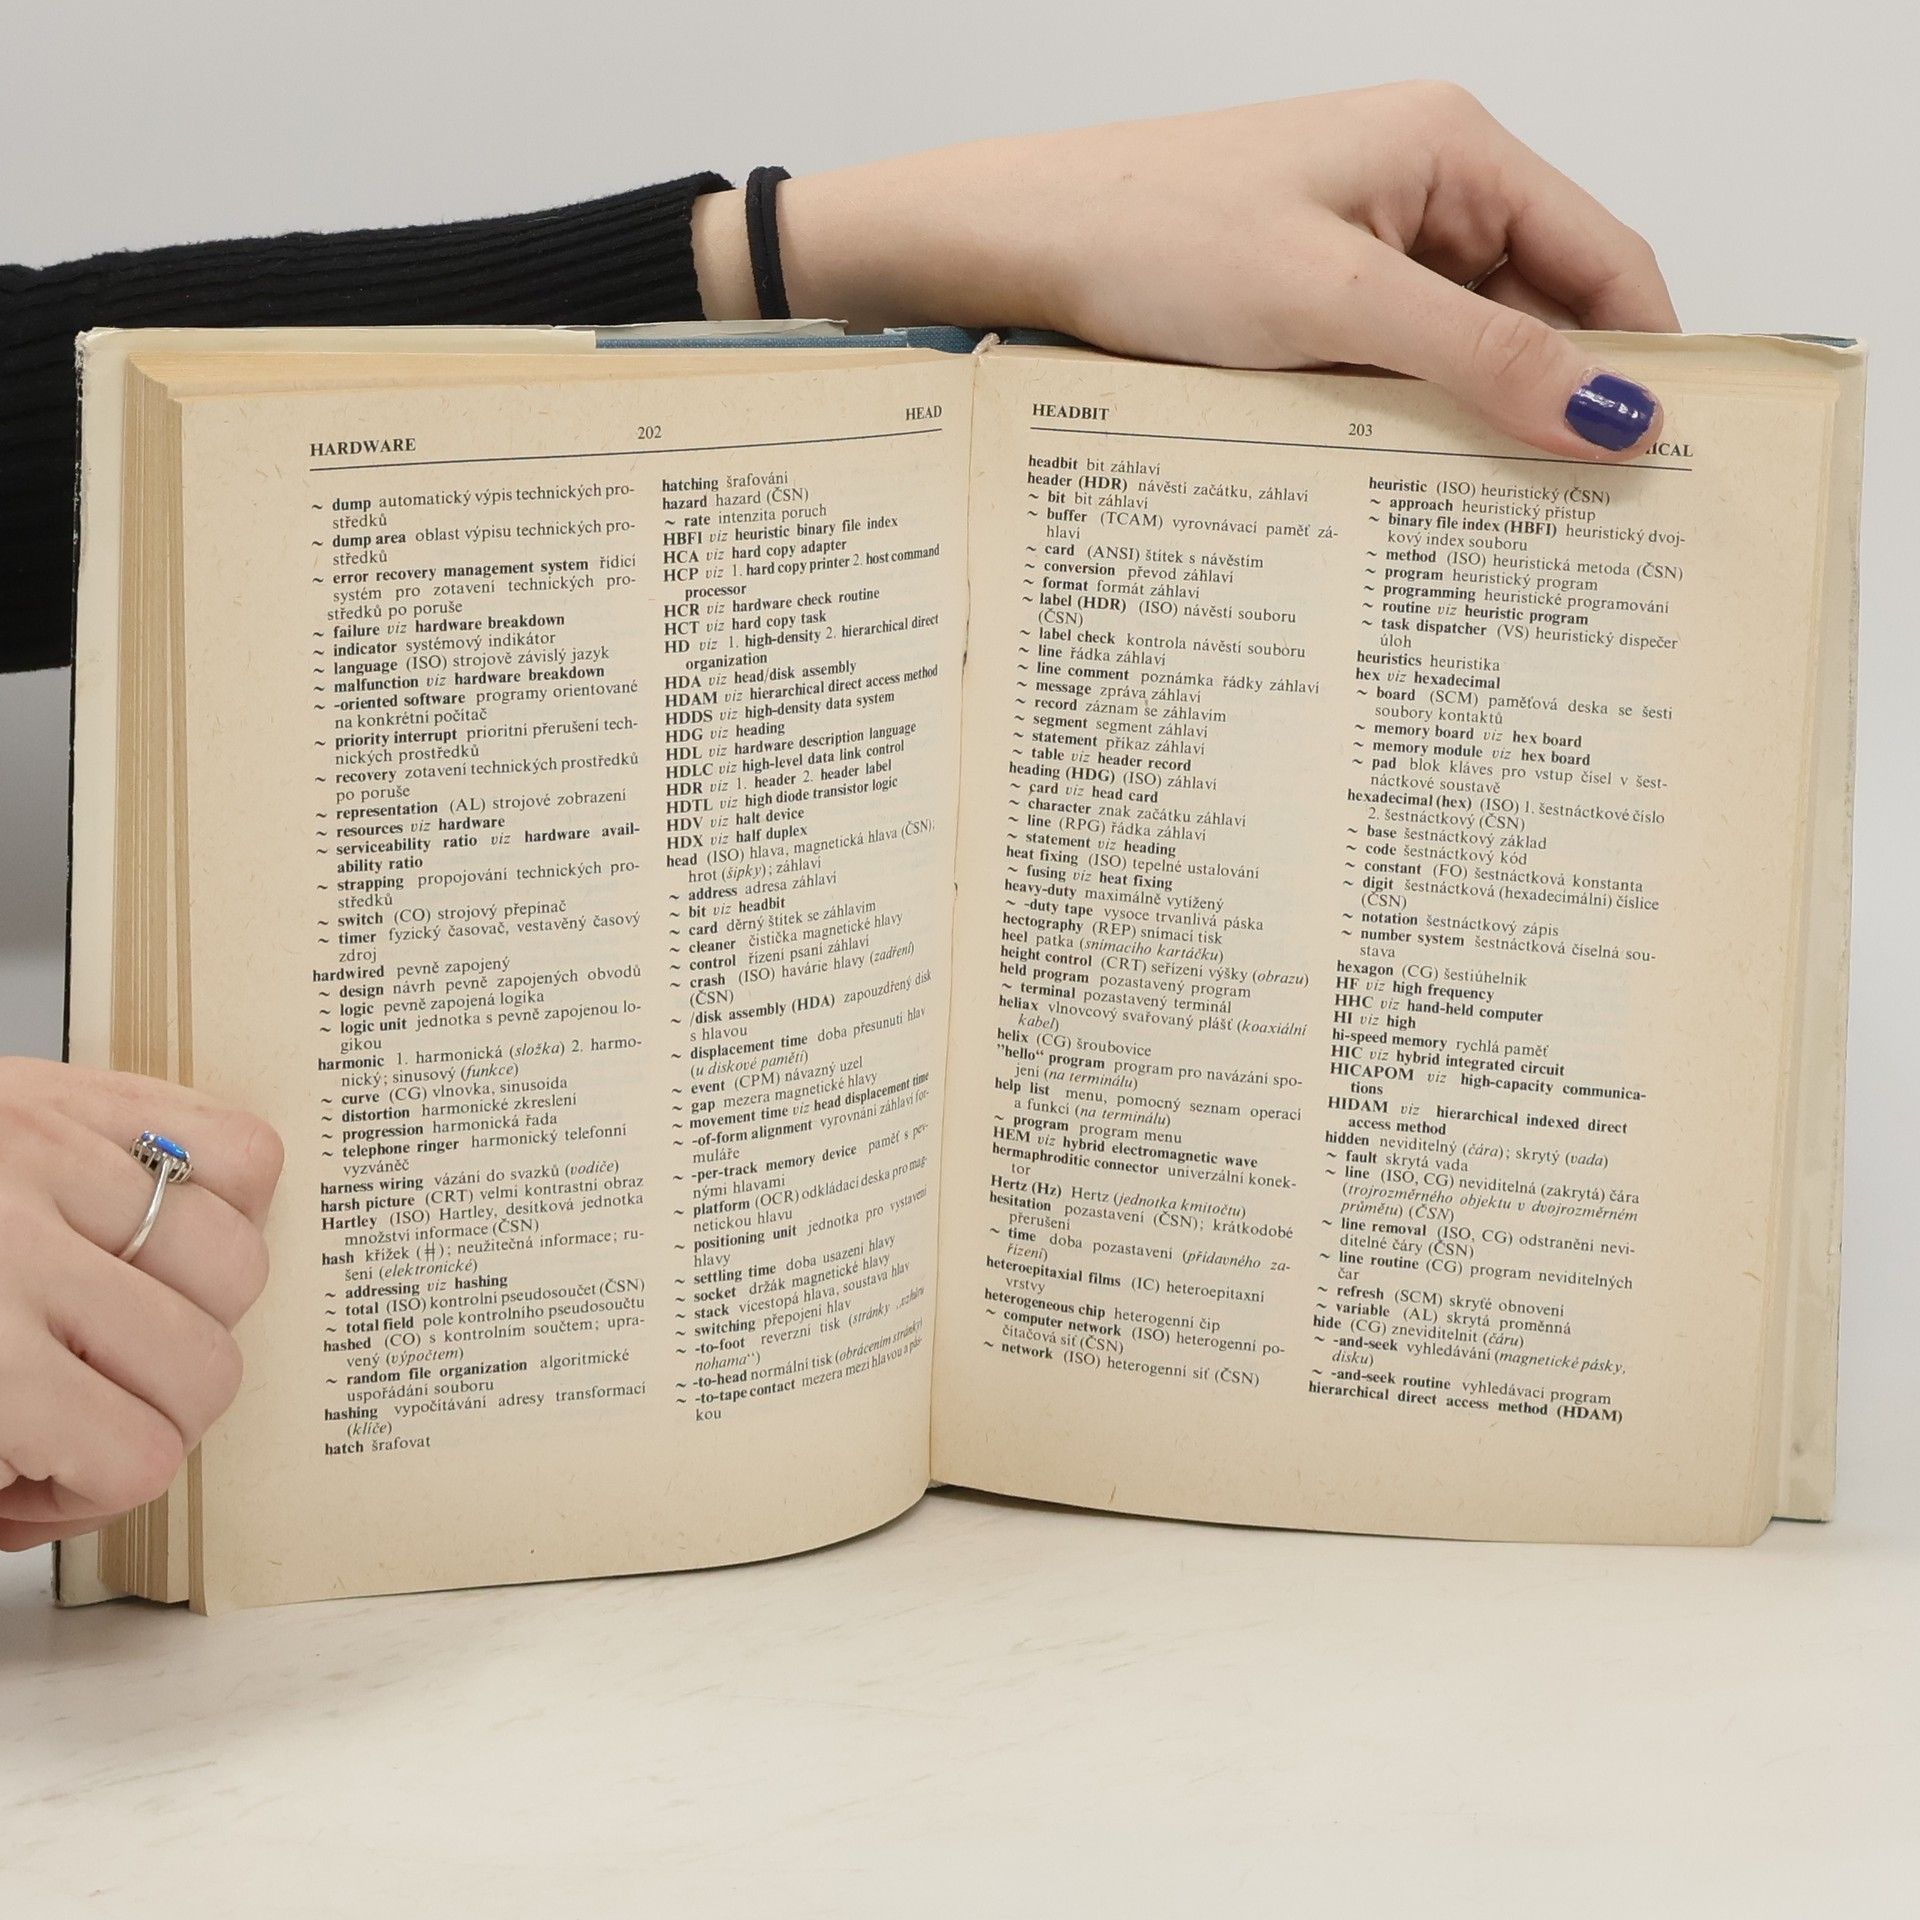 HARDWARE
202
HEAD
~ dump automatický výpis technických pro-
středků
~ dump area oblast výpisu technických pro-
středků
~ error recovery management system řídicí
systém pro zotavení technických pro-
středků po poruše
~ failure viz hardware breakdown
~ indicator systémový indikátor
~ language (ISO) strojově závislý jazyk
~ malfunction viz hardware breakdown
~ -oriented software programy orientované
na konkrétní počítač
~ priority interrupt prioritní přerušení tech-
nických prostředků
~ recovery zotavení technických prostředků
po poruše
~ representation (AL) strojové zobrazení
~ resources viz hardware
~ serviceability ratio viz hardware avail-
ability ratio
~ strapping propojování technických pro-
středků
~ switch (CO) strojový přepínač
~ timer fyzický časovač, vestavěný časový
zdroj
hardwired pevně zapojený
~ design návrh pevně zapojených obvodů
~ logic pevně zapojená logika
~ logic unit jednotka s pevně zapojenou lo-
gikou
harmonic 1. harmonická (složka) 2. harmo-
nický; sinusový (funkce)
~ curve (CG) vlnovka, sinusoida
~ distortion harmonické zkreslení
~ progression harmonická řada
~ telephone ringer harmonický telefonní
vyzváněč
harness wiring vázání do svazků (vodiče)
harsh picture (CRT) velmi kontrastní obraz
Hartley (ISO) Hartley, desítková jednotka
množství informace (ČSN)
hash křížek (⋕); neužitečná informace; ru-
šení (elektronické)
~ addressing viz hashing
~ total (ISO) kontrolní pseudosoučet (ČSN)
~ total field pole kontrolního pseudosoučtu
hashed (CO) s kontrolním součtem; upra-
vený (výpočtem)
~ random file organization algoritmické
uspořádání souboru
hashing vypočítávání adresy transformací
(klíče)
hatch šrafovat
hatching šrafování
hazard hazard (ČSN)
~ rate intenzita poruch
HBFI viz heuristic binary file index
HCA viz hard copy adapter
HCP viz 1. hard copy printer 2. host command
processor
HCR viz hardware check routine
HCT viz hard copy task
HD viz 1. high-density 2. hierarchical direct
organization
HDA viz head/disk assembly
HDAM viz hierarchical direct access method
HDDS viz high-density data system
HDG viz heading
HDL viz hardware description language
HDLC viz high-level data link control
HDR viz 1. header 2. header label
HDTL viz high diode transistor logic
HDV viz halt device
HDX viz half duplex
head (ISO) hlava, magnetická hlava (ČSN);
hrot (šipky); záhlaví
~ address adresa záhlaví
~ bit viz headbit
~ card děrný štítek se záhlavím
~ cleaner čistička magnetické hlavy
~ control řízení psaní záhlaví
~ crash (ISO) havárie hlavy (zadření)
(ČSN)
~ /disk assembly (HDA) zapouzdřený disk
s hlavou
~ displacement time doba přesunutí hlav
(u diskové paměti)
~ event (CPM) návazný uzel
~ gap mezera magnetické hlavy
~ movement time viz head displacement time
~ -of-form alignment vyrovnání záhlaví for-
muláře
~ -per-track memory device paměť s pev-
nými hlavami
~ platform (OCR) odkládací deska pro mag-
netickou hlavu
~ positioning unit jednotka pro vystavení
hlavy
~ settling time doba usazení hlavy
~ socket držák magnetické hlavy
~ stack vícestopá hlava, soustava hlav
~ switching přepojení hlav
~ -to-foot reverzní tisk (stránky „vzhůru
nohama“)
~ -to-head normální tisk (obrácením stránky)
~ -to-tape contact mezera mezi hlavou a pás-
kou
HEADBIT
203
ICAL
headbit bit záhlaví
header (HDR) návěstí začátku, záhlaví
~ bit bit záhlaví
~ buffer (TCAM) vyrovnávací paměť zá-
hlaví
~ card (ANSI) štítek s návěstím
~ conversion převod záhlaví
~ format formát záhlaví
~ label (HDR) (ISO) návěstí souboru
(ČSN)
~ label check kontrola návěstí souboru
~ line řádka záhlaví
~ line comment poznámka řádky záhlaví
~ message zpráva záhlaví
~ record záznam se záhlavím
~ segment segment záhlaví
~ statement příkaz záhlaví
~ table viz header record
heading (HDG) (ISO) záhlaví
~ card viz head card
~ character znak začátku záhlaví
~ line (RPG) řádka záhlaví
~ statement viz heading
heat fixing (ISO) tepelné ustalování
~ fusing viz heat fixing
heavy-duty maximálně vytížený
~ -duty tape vysoce trvanlivá páska
hectography (REP) snímací tisk
heel patka (snímacího kartáčku)
height control (CRT) seřízení výšky (obrazu)
held program pozastavený program
~ terminal pozastavený terminál
heliax vlnovcový svařovaný plášť (koaxiální
kabel)
helix (CG) šroubovice
”hello“ program program pro navázání spo-
jení (na terminálu)
help list menu, pomocný seznam operací
a funkcí (na terminálu)
~ program program menu
HEM viz hybrid electromagnetic wave
hermaphroditic connector univerzální konek-
tor
Hertz (Hz) Hertz (jednotka kmitočtu)
hesitation pozastavení (ČSN); krátkodobé
přerušení
~ time doba pozastavení (přídavného za-
řízení)
heteroepitaxial films (IC) heteroepitaxní
vrstvy
heterogeneous chip heterogenní čip
~ computer network (ISO) heterogenní po-
čítačová síť (ČSN)
~ network (ISO) heterogenní síť (ČSN)
heuristic (ISO) heuristický (ČSN)
~ approach heuristický přístup
~ binary file index (HBFI) heuristický dvoj-
kový index souboru
~ method (ISO) heuristická metoda (ČSN)
~ program heuristický program
~ programming heuristické programování
~ routine viz heuristic program
~ task dispatcher (VS) heuristický dispečer
úloh
heuristics heuristika
hex viz hexadecimal
~ board (SCM) paměťová deska se šesti
soubory kontaktů
~ memory board viz hex board
~ memory module viz hex board
~ pad blok kláves pro vstup čísel v šest-
náctkové soustavě
hexadecimal (hex) (ISO) 1. šestnáctkové číslo
2. šestnáctkový (ČSN)
~ base šestnáctkový základ
~ code šestnáctkový kód
~ constant (FO) šestnáctková konstanta
~ digit šestnáctková (hexadecimální) číslice
(ČSN)
~ notation šestnáctkový zápis
~ number system šestnáctková číselná sou-
stava
hexagon (CG) šestiúhelník
HF viz high frequency
HHC viz hand-held computer
HI viz high
hi-speed memory rychlá paměť
HIC viz hybrid integrated circuit
HICAPOM viz high-capacity communica-
tions
HIDAM viz hierarchical indexed direct
access method
hidden neviditelný (čára); skrytý (vada)
~ fault skrytá vada
~ line (ISO, CG) neviditelná (zakrytá) čára
(trojrozměrného objektu v dvojrozměrném
průmětu) (ČSN)
~ line removal (ISO, CG) odstranění nevi-
ditelné čáry (ČSN)
~ line routine (CG) program neviditelných
čar
~ refresh (SCM) skryté obnovení
~ variable (AL) skrytá proměnná
hide (CG) zneviditelnit (čáru)
~ -and-seek vyhledávání (magnetické pásky,
disku)
~ -and-seek routine vyhledávací program
hierarchical direct access method (HDAM)